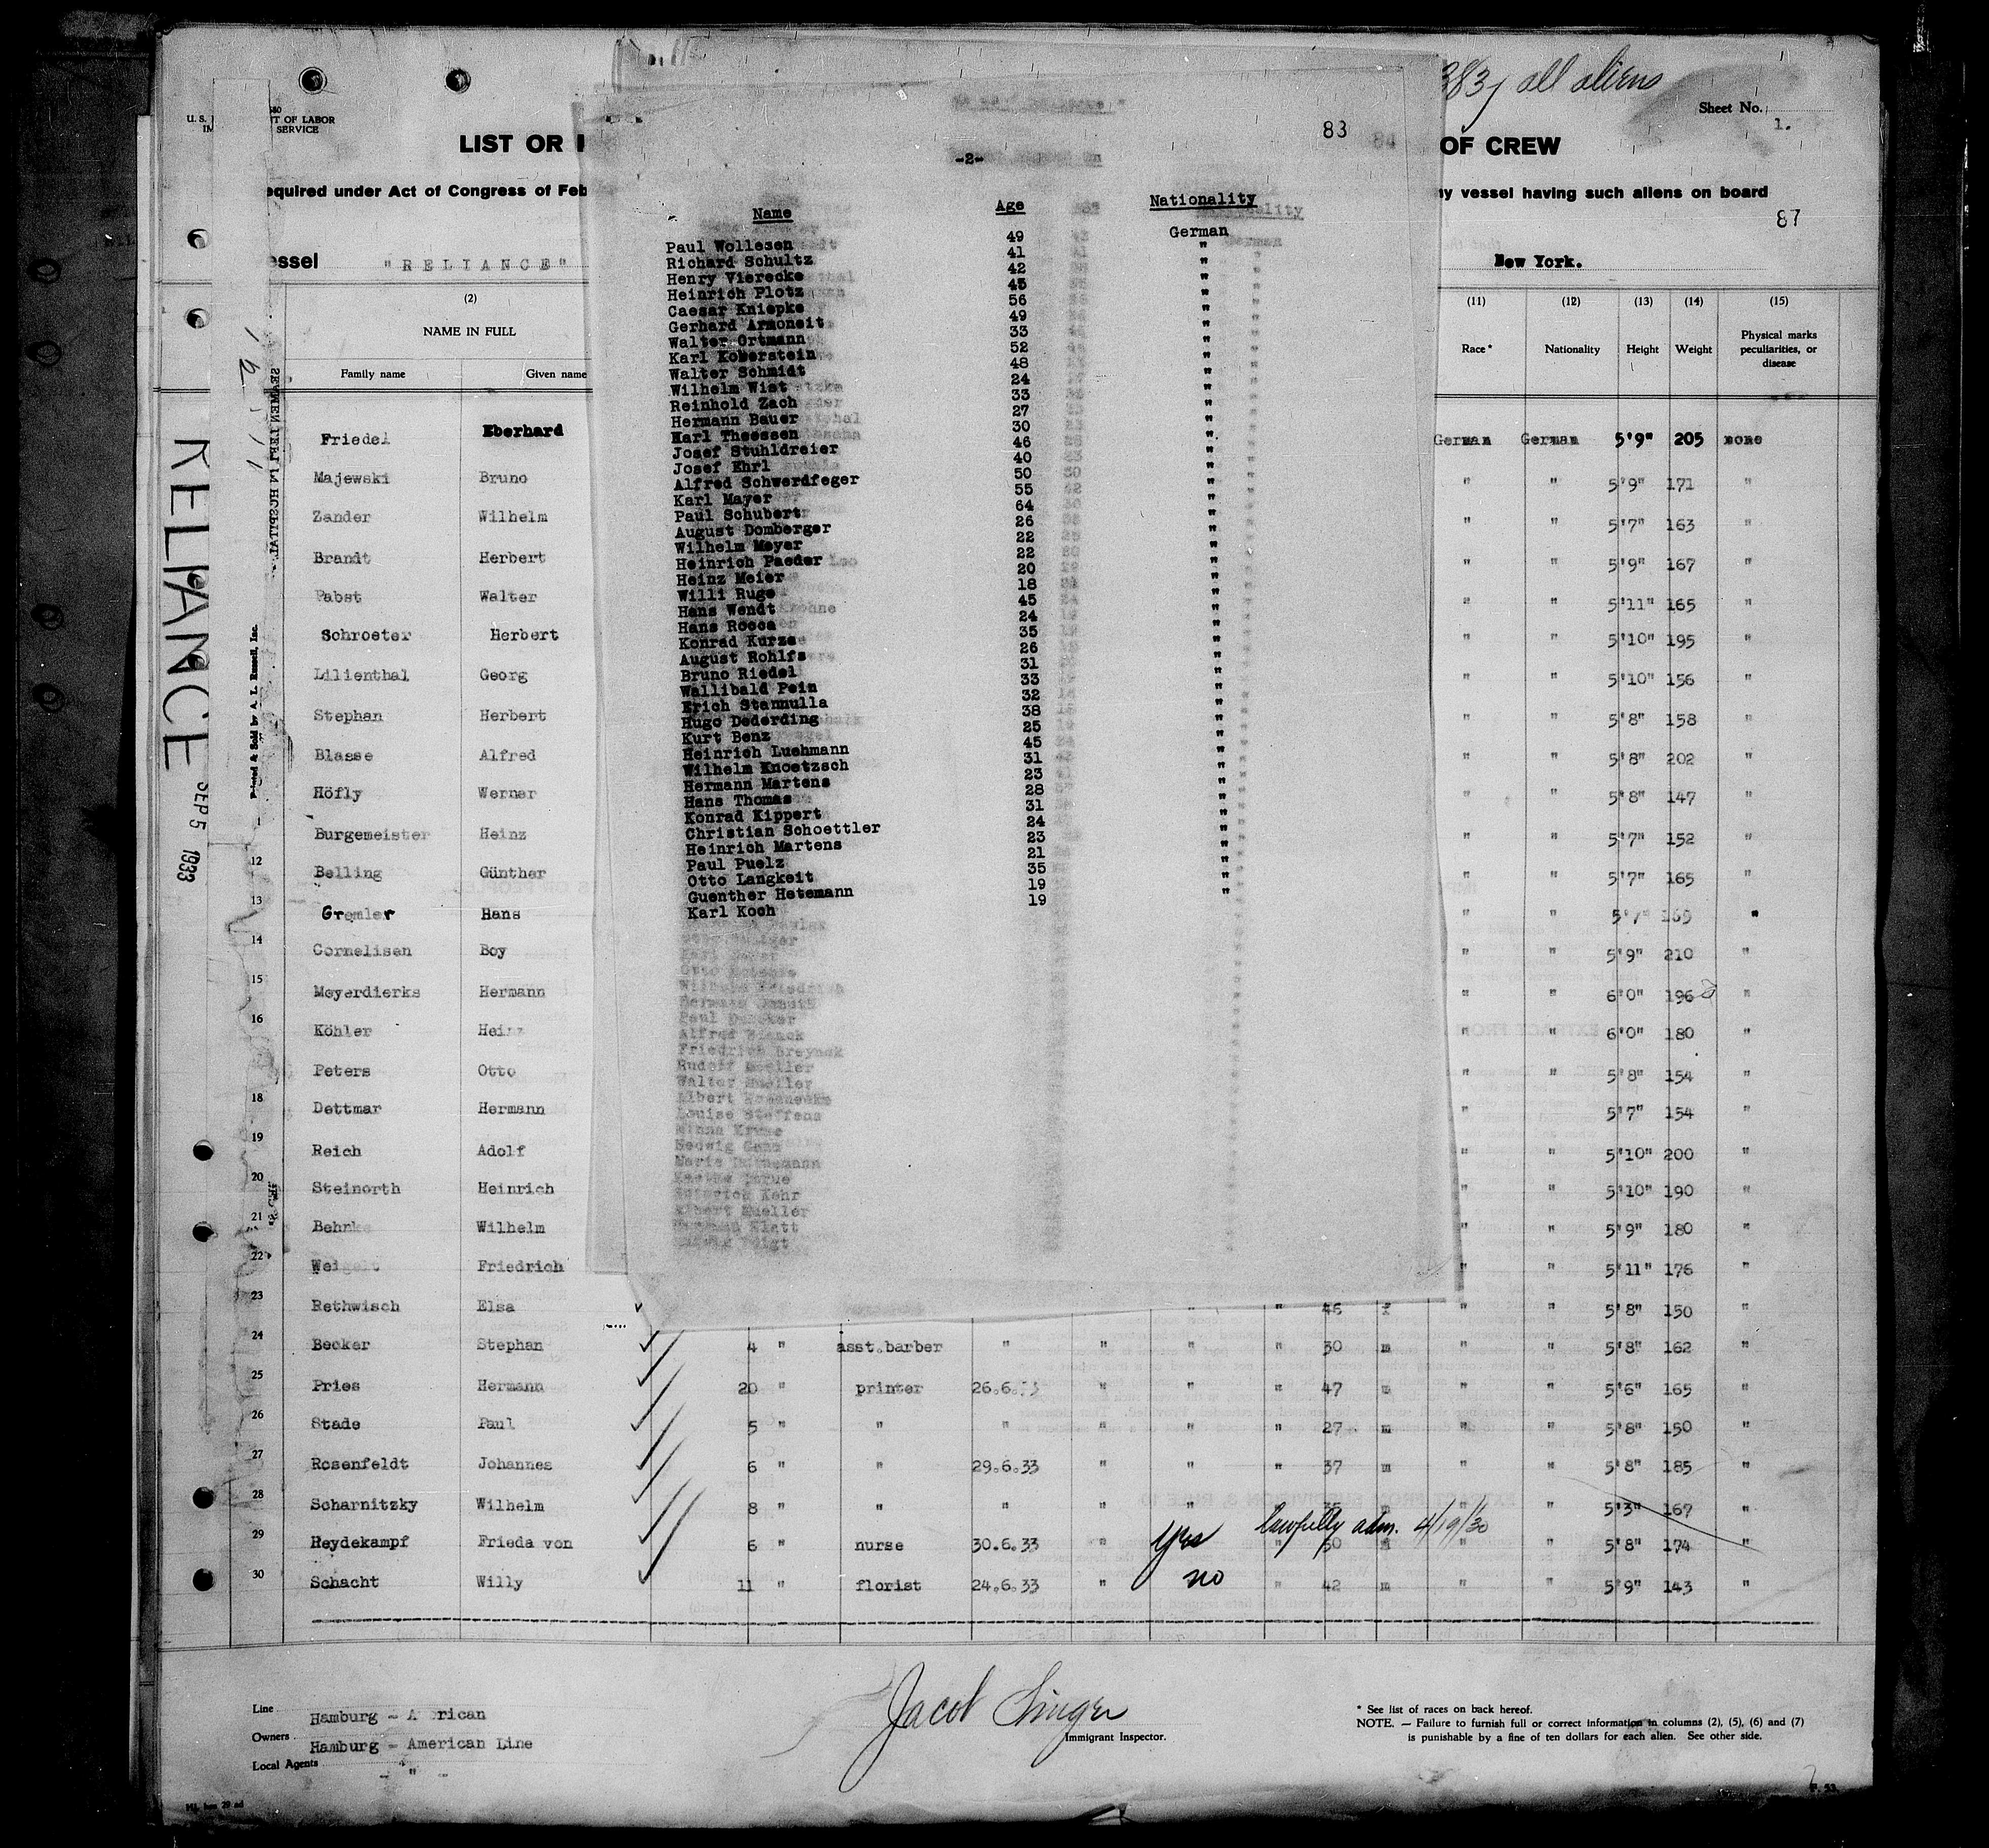 383, all aliens
Sheet No. 1.
T OF LABOR
SERVICE
LIST OR
OF CREW
83
-2-
equired under Act of Congress of Feb
y vessel having such aliens on board
87
essel "RELIANCE"
New York.
(2)
NAME IN FULL
Family name Given name
(11) (12) (13) (14) (15)
Race* Nationality Height Weight Physical marks peculiarities, or disease
Name Age Nationality
Paul Wollesen 49 German
Richard Schultz 41 "
Henry Vierecke 42 "
Heinrich Plotz 45 "
Caesar Kniepke 56 "
Gerhard Armoneit 49 "
Walter Ortmann 33 "
Karl Koberstein 52 "
Walter Schmidt 48 "
Wilhelm Wist 24 "
Reinhold Zach 33 "
Hermann Bauer 27 "
Karl Theessen 30 "
Josef Stuhldreier 46 "
Josef Ehrl 40 "
Alfred Schwerdfeger 50 "
Karl Mayer 55 "
Paul Schubert 64 "
August Domberger 26 "
Wilhelm Meyer 22 "
Heinrich Paeder 22 "
Heinz Meier 20 "
Willi Ruge 18 "
Hans Wendt 45 "
Hans Rocca 24 "
Konrad Kurze 35 "
August Rohlfs 26 "
Bruno Riedel 31 "
Wallibald Pein 33 "
Erich Stannulla 32 "
Hugo Dederding 38 "
Kurt Benz 25 "
Heinrich Luehmann 45 "
Wilhelm Knoetzsch 31 "
Hermann Martens 23 "
Hans Thomas 28 "
Konrad Kippert 31 "
Christian Schoettler 24 "
Heinrich Martens 23 "
Paul Puelz 21 "
Otto Langkeit 35 "
Guenther Hetemann 19 "
Karl Koch 19
RELIANCE
SEP 5 1933
SEAMEN LEFT IN HOSPITAL
Printed & Sold by A. L. Russell, Inc.
Friedel Eberhard German German 5'9" 205 none
Majewski Bruno " " 5'9" 171 "
Zander Wilhelm " " 5'7" 163 "
Brandt Herbert " " 5'9" 167 "
Pabst Walter " " 5'11" 165 "
Schroeter Herbert " " 5'10" 195 "
Lilienthal Georg " " 5'10" 156 "
Stephan Herbert " " 5'8" 158 "
Blasse Alfred " " 5'8" 202 "
Höfly Werner " " 5'8" 147 "
Burgemeister Heinz " " 5'7" 152 "
12 Belling Günther " " 5'7" 165 "
13 Gremler Hans " " 5'7" 169 "
14 Cornelisen Boy " " 5'9" 210 "
15 Meyerdierks Hermann " " 6'0" 196 "
16 Köhler Heinz " " 6'0" 180 "
Peters Otto " " 5'8" 154 "
18 Dettmar Hermann " 5'7" 154 "
19 Reich Adolf " " 5'10" 200 "
20 Steinorth Heinrich " " 5'10" 190 "
21 Behnke Wilhelm " " 5'9" 180 "
22 Weigelt Friedrich " " 5'11" 176 "
23 Rethwisch Elsa " " 46 f " " 5'8" 150 "
24 Becker Stephan 4 " asst.barber " " " " 30 m " " 5'8" 162 "
25 Pries Hermann 20 " printer 26.6.33 " " " 47 m " " 5'6" 165 "
26 Stade Paul 5 " " " " " " 27 m " " 5'8" 150 "
27 Rosenfeldt Johannes 6 " " 29.6.33 " " " 37 m " " 5'8" 185 "
28 Scharnitzky Wilhelm 8 " " " " " " 35 m " " 5'3" 167 "
lawfully adm. 4/19/30
29 Heydekampf Frieda von 6 " nurse 30.6.33 " yes " 50 f " " 5'8" 174 "
30 Schacht Willy 11 " florist 24.6.33 " no " 42 m " " 5'9" 143 "
Line Hamburg - American
Owners Hamburg - American Line
Local Agents - " -
Jacob Singer
Immigrant Inspector.
* See list of races on back hereof.
NOTE. — Failure to furnish full or correct information in columns (2), (5), (6) and (7)
is punishable by a fine of ten dollars for each alien. See other side.